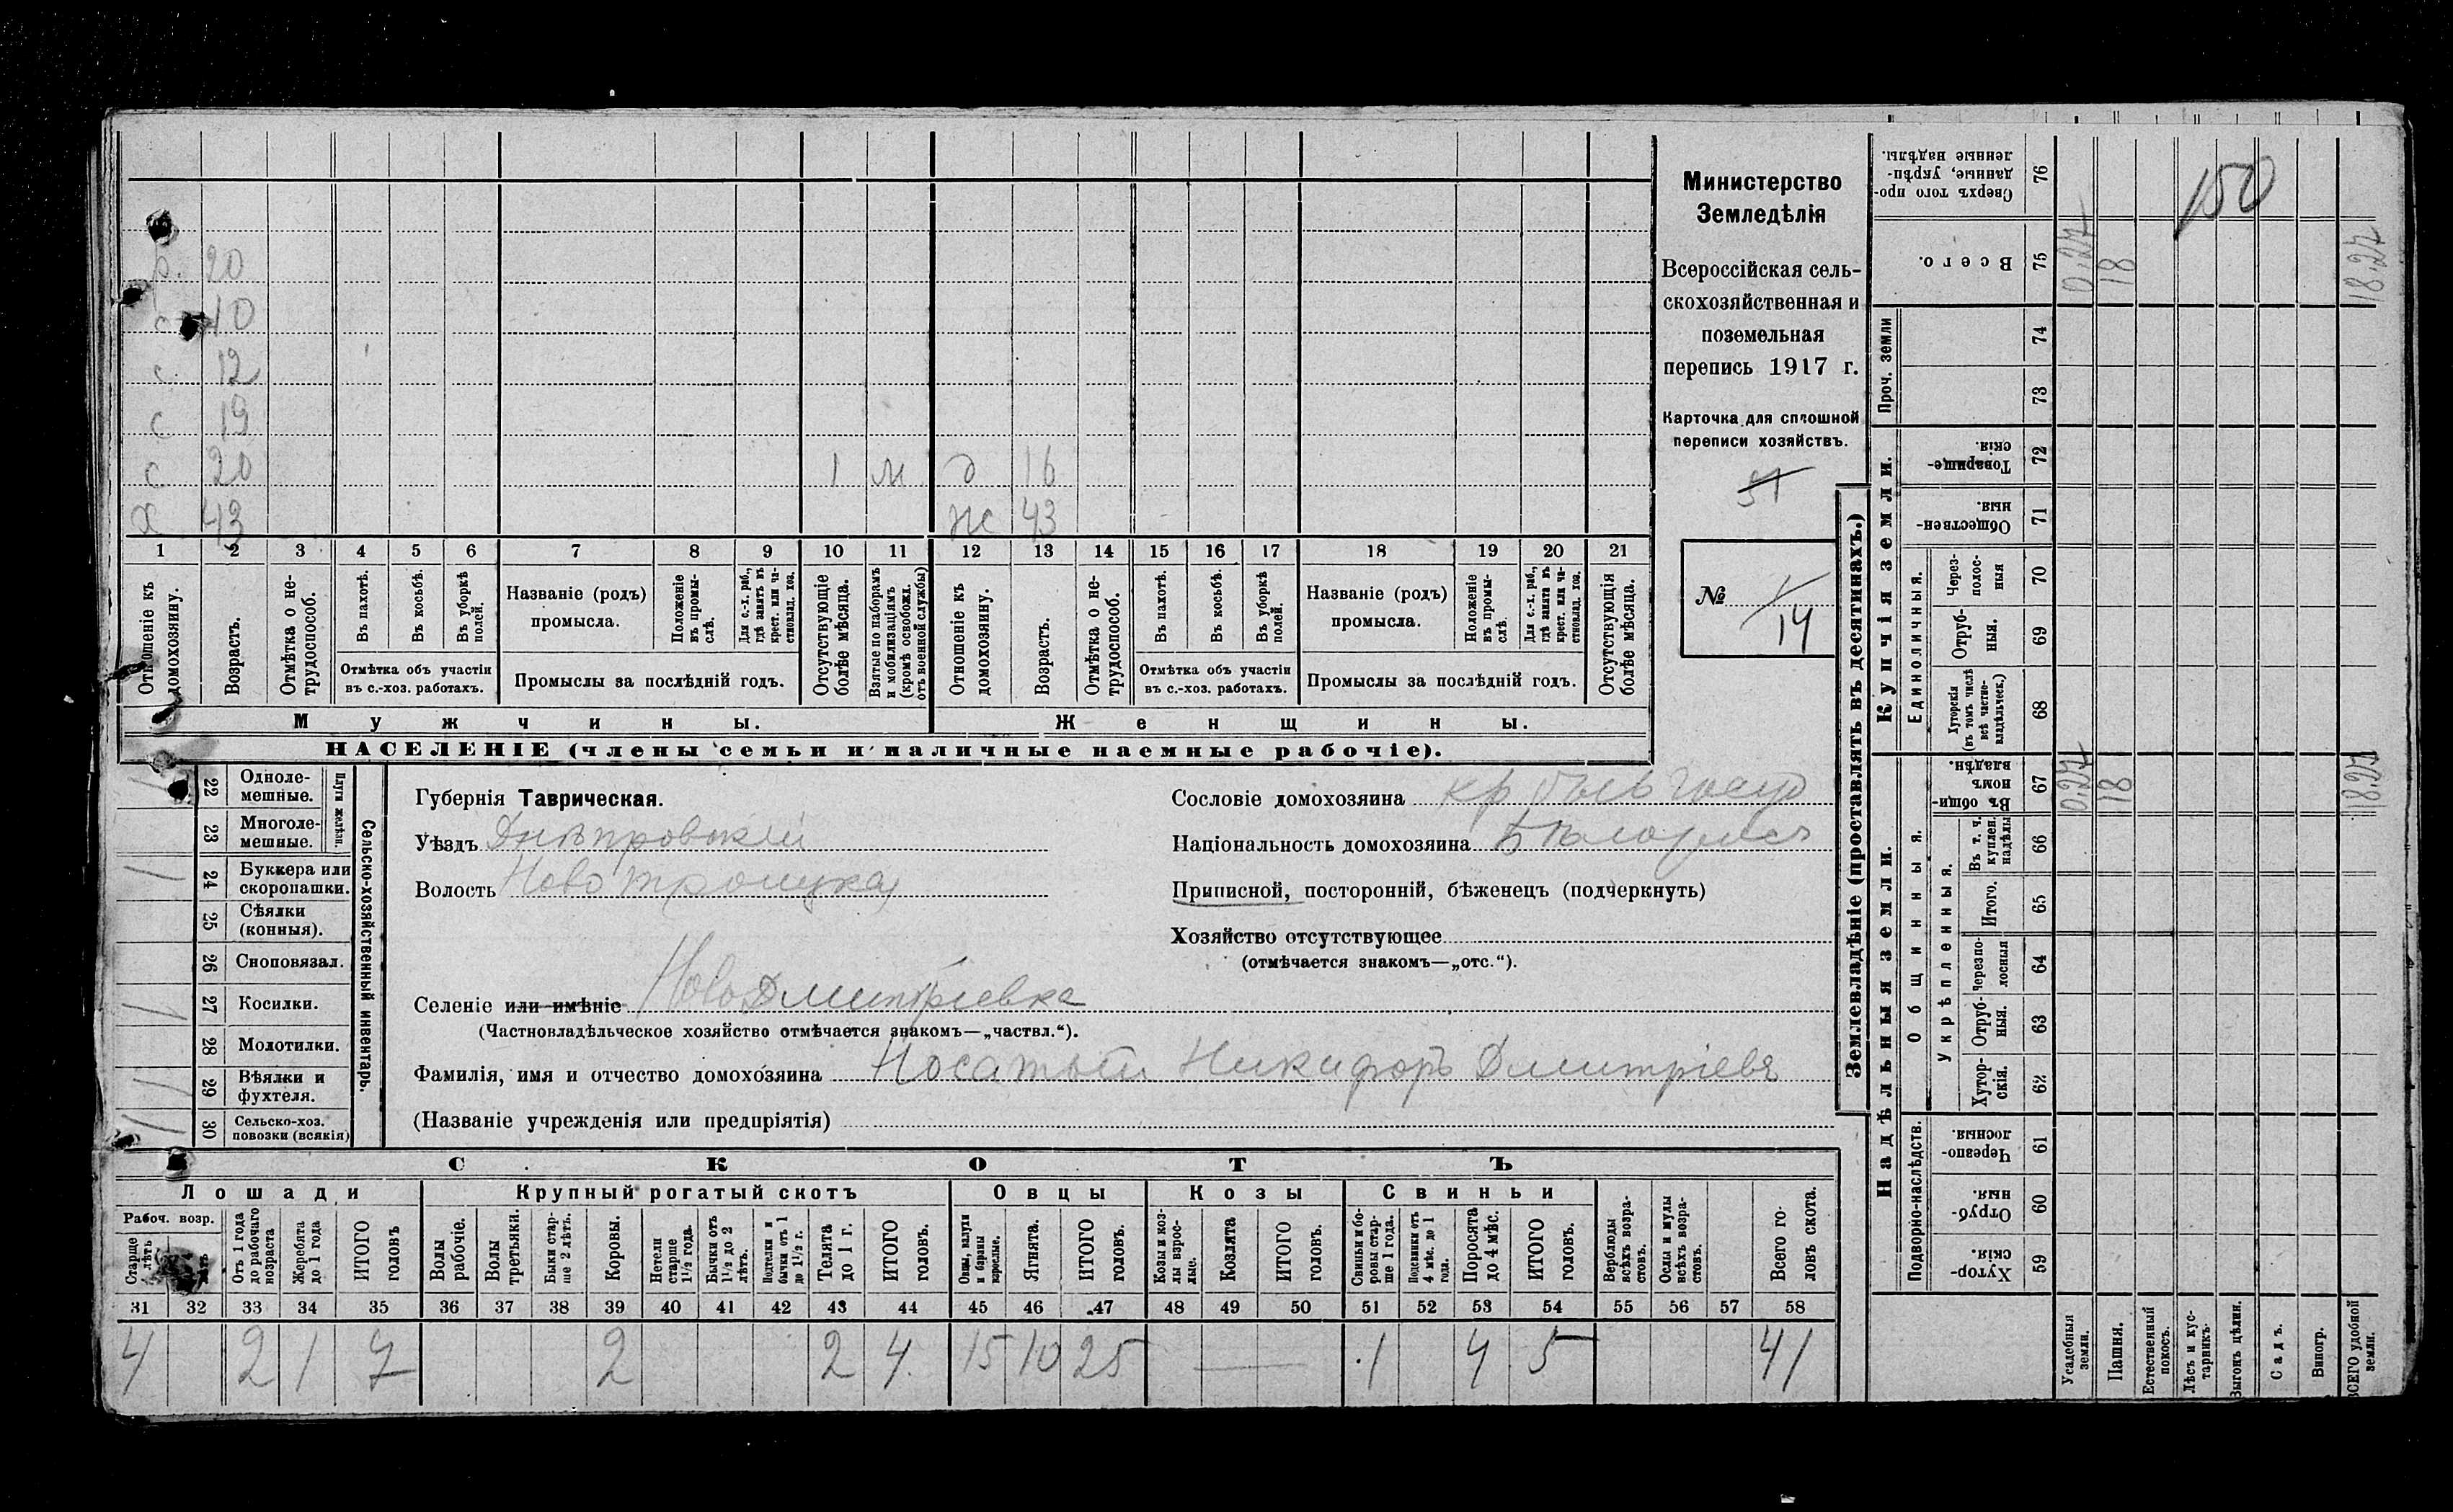 р. 20
с 10
с 12
с 19
с 20 1 м д 16
х 43 ж 43
1 2 3 4 5 6 7 8 9 10 11 12 13 14 15 16 17 18 19 20 21
Отношеніе къ домохозяину.
Возрастъ.
Отмѣтка о нетрудоспособ.
Въ пахотѣ.
Въ косьбѣ.
Въ уборкѣ полей.
Отмѣтка объ участіи въ с.-хоз. работахъ.
Названіе (родъ) промысла.
Положеніе въ промыслѣ.
Для с.-х. раб., гдѣ занятъ въ крест. или частновлад. хоз.
Промыслы за послѣдній годъ.
Отсутствующіе болѣе мѣсяца.
Взятые по наборамъ и мобилизаціямъ (кромѣ освобожд. отъ военной службы)
Отношеніе къ домохозяину.
Возрастъ.
Отмѣтка о нетрудоспособ.
Въ пахотѣ.
Въ косьбѣ.
Въ уборкѣ полей.
Отмѣтка объ участіи въ с.-хоз. работахъ.
Названіе (родъ) промысла.
Положеніе въ промыслѣ.
Для с.-х. раб., гдѣ занята въ крест. или частновлад. хоз.
Промыслы за послѣдній годъ.
Отсутствующія болѣе мѣсяца.
Мужчины. Женщины.
НАСЕЛЕНІЕ (члены семьи и наличные наемные рабочіе).
Министерство
Земледѣлія
Всероссійская сель-
скохозяйственная и
поземельная
перепись 1917 г.
Карточка для сплошной
переписи хозяйствъ.
51
№ 14
22 Однолемешные.
23 Многолемешные.
Плуги желѣзн.
24 Буккера или скоропашки.
25 Сѣялки (конныя).
26 Сноповязал.
27 Косилки.
28 Молотилки.
29 Вѣялки и фухтеля.
30 Сельско-хоз. повозки (всякія)
Сельско-хозяйственный инвентарь.
Губернія Таврическая.
Уѣздъ Днѣпровскій
Волость Новотроицкая
Селеніе или имѣніе НовоДмитріевка
(Частновладѣльческое хозяйство отмѣчается знакомъ—„частвл.“).
Фамилія, имя и отчество домохозяина Носатый Никифоръ Дмитріевъ
(Названіе учрежденія или предпріятія)
Сословіе домохозяина кр бывъ госуд
Національность домохозяина Бѣлорусъ
Приписной, посторонній, бѣженецъ (подчеркнуть)
Хозяйство отсутствующее
(отмѣчается знакомъ—„отс.“).
СКОТЪ
Лошади Крупный рогатый скотъ Овцы Козы Свиньи
Рабоч. возр.
Старше лѣтъ
лѣтъ
Отъ 1 года до рабочаго возраста
Жеребята до 1 года
ИТОГО головъ
Волы рабочіе.
Волы третьяки.
Быки старше 2 лѣтъ.
Коровы.
Нетели старше 1½ года.
Бычки отъ 1½ до 2 лѣтъ.
Подтелки и бычки отъ 1 до 1½ г.
Телята до 1 г.
ИТОГО головъ.
Овцы, валухи и бараны взрослые.
Ягнята.
ИТОГО головъ.
Козы и козлы взрослые.
Козлята
ИТОГО головъ.
Свиньи и боровы старше 1 года.
Подсвинки отъ 4 мѣс. до 1 года.
Поросята до 4 мѣс.
ИТОГО головъ.
Верблюды всѣхъ возрастовъ.
Ослы и мулы всѣхъ возрастовъ.
Всего головъ скота.
31 32 33 34 35 36 37 38 39 40 41 42 43 44 45 46 47 48 49 50 51 52 53 54 55 56 57 58
4 2 1 7 2 2 4 15 10 25 — 1 4 5 41
Землевладѣніе (проставлять въ десятинахъ.)
Сверхъ того проданные, укрѣпленные надѣлы. 76
150
Всего. 75 0.27 18 18.27
Проч. земли 74 73
Купчія земли.
Товарищескія. 72
Общественныя 71
Единоличныя.
Черезполосныя 70
Отрубныя. 69
Хуторскія (въ томъ числѣ всѣ частновладѣльческ.) 68
Надѣльныя земли.
Общинныя.
Въ общинномъ владѣн. 67 0.27 18 18.27
Укрѣпленныя.
Въ т. ч. куплен. надѣлы 66
Итого. 65
Черезполосныя 64
Отрубныя. 63
Хуторскія. 62
Подворно-наслѣдств.
Черезполосныя. 61
Отрубныя. 60
Хуторскія. 59
Усадебныя земли.
Пашня.
Естественный покосъ.
Лѣсъ и кустарникъ.
Выгонъ цѣлин.
Садъ.
Виногр.
ВСЕГО удобной земли.